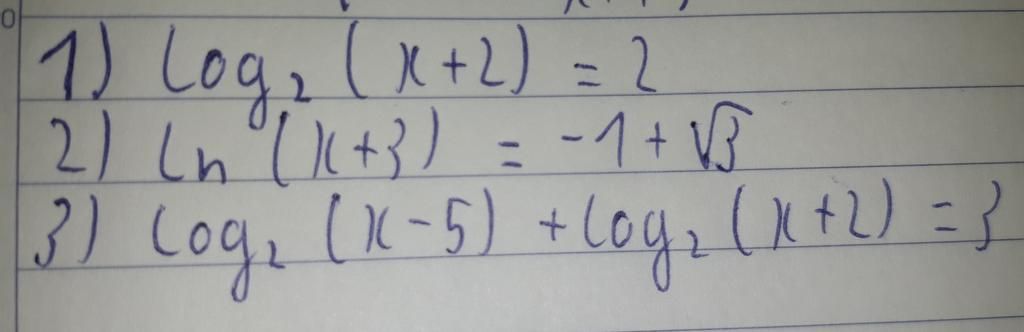 1) log₂ (x+2) = 2
2) ln (x+3) = -1 + √3
3) log₂ (x-5) + log₂ (x+2) = 3